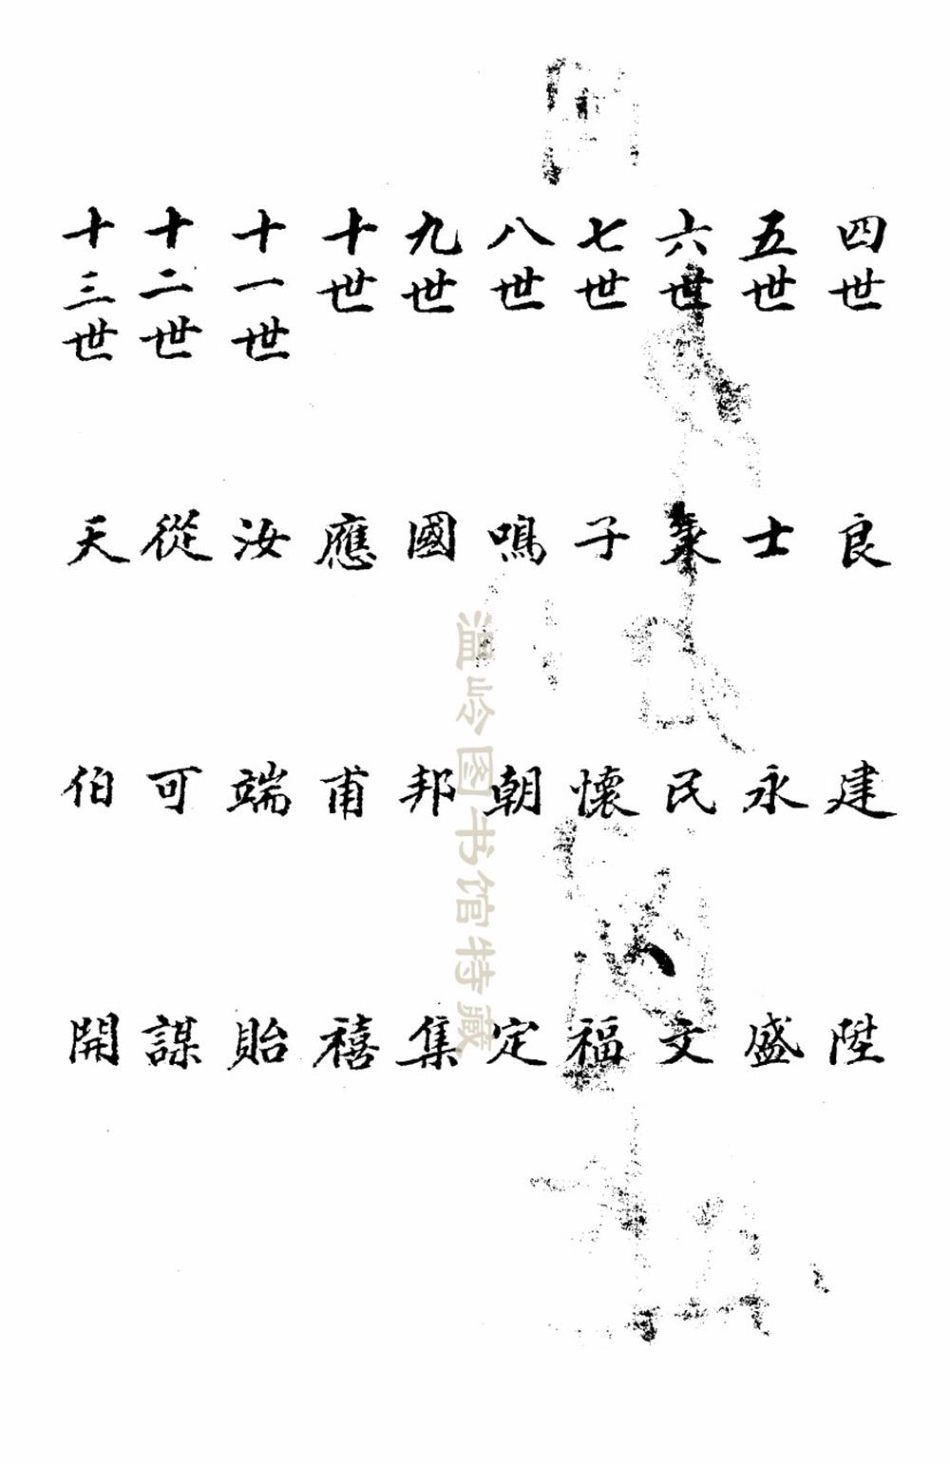 四世 良 建 陞
五世 士 永 盛
六世 民 文
七世 子 懷 福
八世 鳴 朝 定
九世 國 邦 集
十世 應 甫 禧
十一世 汝 端 貽
十二世 從 可 謀
十三世 天 伯 開
温岭图书馆特藏